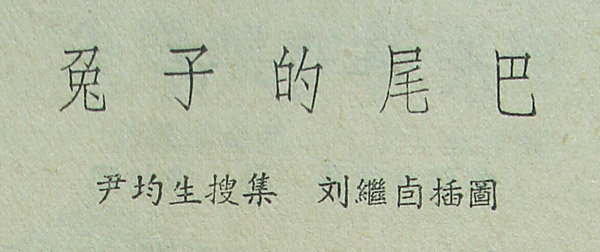 兔子的尾巴
尹均生搜集　刘繼卣插圖